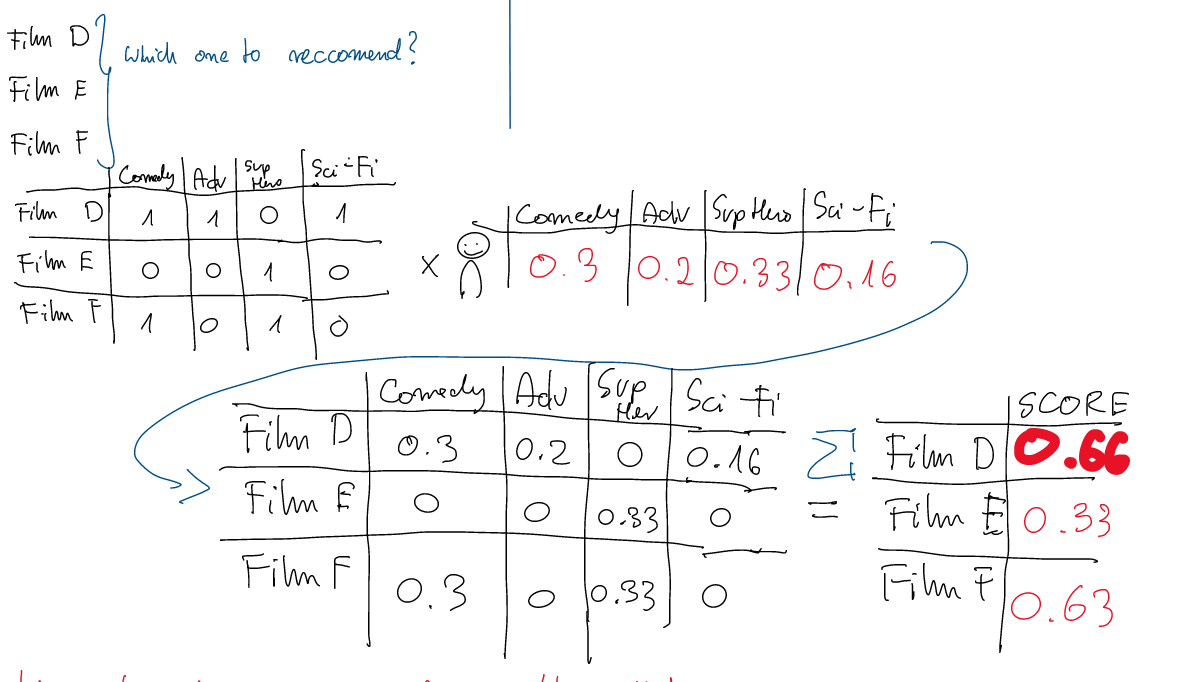 Film D
which one to reccomend?
Film E
Film F
Comedy Adv Sup Hero Sci-Fi
Film D 1 1 0 1
Film E 0 0 1 0
Film F 1 0 1 0
x Comedy Adv Sup Hero Sci-Fi
0.3 0.2 0.33 0.16
Comedy Adv Sup Her Sci-Fi
Film D 0.3 0.2 0 0.16
Film E 0 0 0.33 0
Film F 0.3 0 0.33 0
Σ
=
SCORE
Film D 0.66
Film E 0.33
Film F 0.63